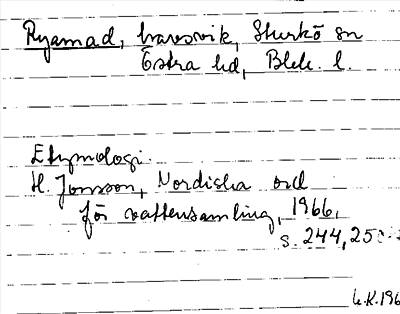 Ryamad, havsvik, Sturkö sn
Östra hd, Blek. l.
Etymologi.
H. Jonsson, Nordiska ord
för vattensamling, 1966,
s. 244, 25
L.K. 196